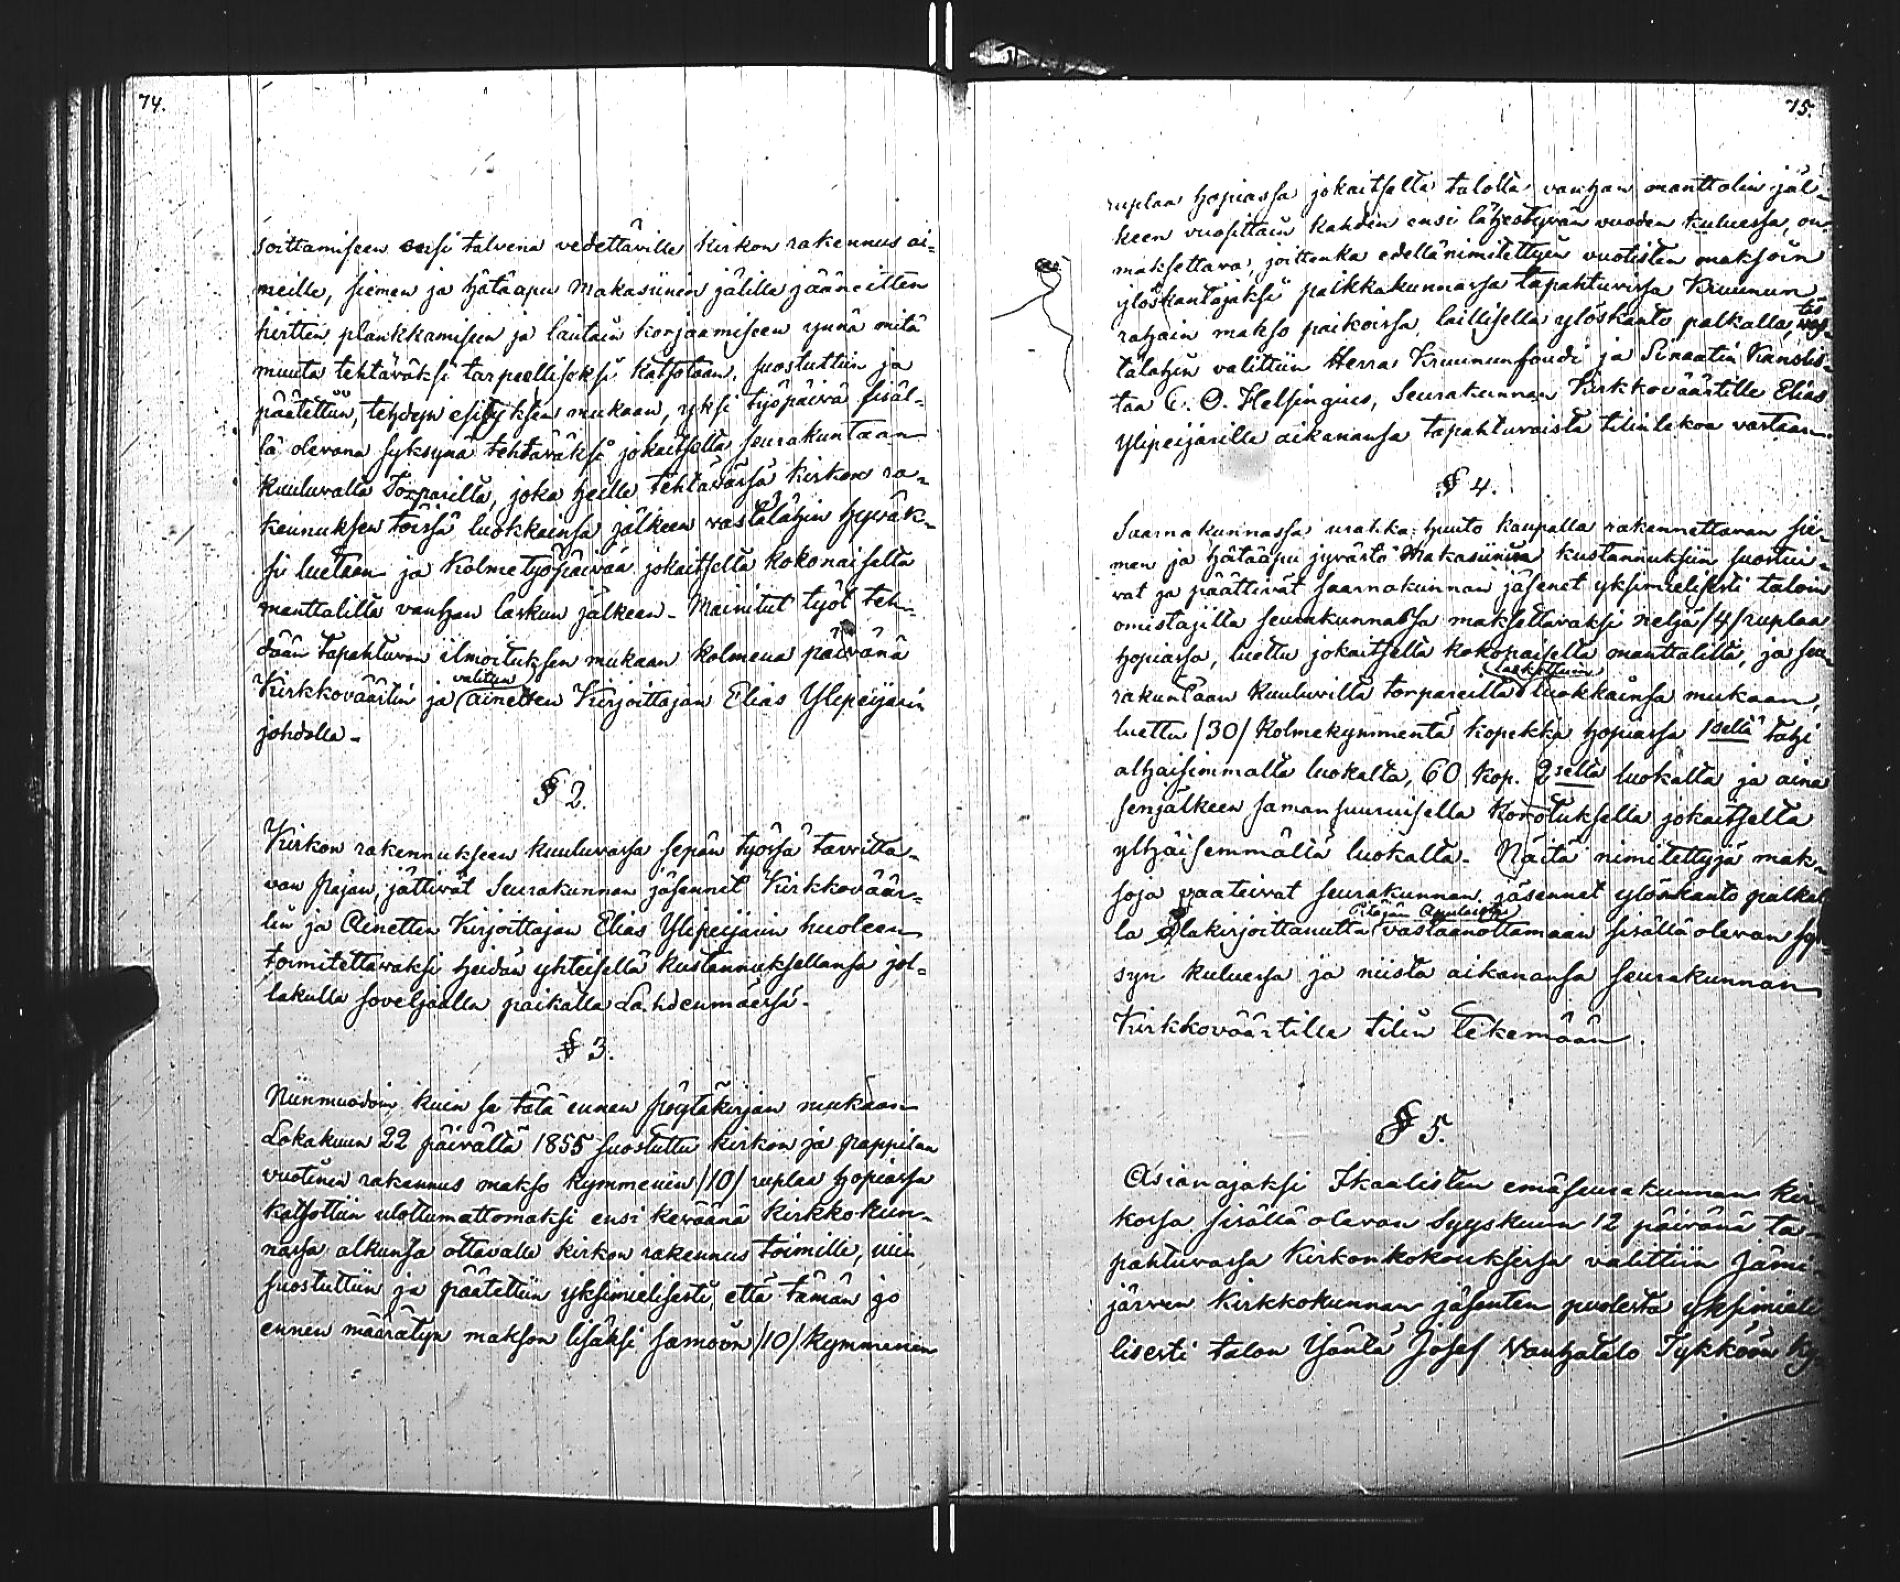 74.
soittamiseen ensi talvena vedettäville kirkon rakennus ai-
neille, siemen ja hätäapu Makasiinin jälille jääneitten
hirtten plankkamiseen ja lautain korjaamiseen ynnä mitä
muuta tehtäväksi tarpeelliseksi katsotaan, suostuttiin ja
päätettiin, tehdyn esityksen mukaan, yksi työpäivä sisäl-
lä olevana syksynä tehtäväksi jokaitselta seurakuntaan
kuuluvalta Torparilta, joka heille tehtävässä kirkon ra-
kennuksen töissä luokkainsa jälkeen vastalähin hyväk-
si luetaan ja Kolme työpäivää jokaitselta kokonaiselta
manttalilta vanhan laskun jälkeen. Mainitut työt teh-
dään tapahtuvan ilmoituksen mukaan kolmena päivänä
valitun
Kirkkoväärtin ja ainetten Kirjoittajan Elias Ylipeijarin
johdolla.
§ 2.
Kirkon rakennukseen kuuluvassa sepän työssä tarvitta-
van pajan, jättivät Seurakunnan jäsennet Kirkkoväär-
tin ja Ainetten Kirjoittajan Elias Ylipeijarin huoleen
toimitettavaksi heidän yhteisellä kustannuksellansa jol-
lakulla soveljaalla paikalla Lahdenmäessä.
§ 3.
Niinmuodoin kuin se tätä ennen pöytäkirjan mukaan
Lokakuun 22 päivältä 1855 suostuttu kirkon ja pappilan
vuotinen rakennus makso kymmenin /10/ ruplaa hopiassa
katsottiin ulottumattomaksi ensi keväänä kirkkokun-
nassa alkunsa ottavalle kirkon rakennus toimille, niin
suostuttiin ja päätettiin yksimielisesti, että tämän jo
ennen määrätyn makson lisäksi samoin /10/ kymmenin
75.
ruplaa hopiassa jokaitselta talolta vanhan manttalin jäl-
keen vuosittain kahden ensi lähestyvän vuoden kuluessa, on
maksettava, joittenka edellänimitettyin vuotisten maksoin
ylöskantajaksi paikkakunnassa tapahtuvissa Kruunun
rahain makso paikoissa, laillisella ylöskanto palkalla,
tälähin valittiin Herra Kruununfoudi ja Senaatin Kanslis-
taa C. O. Helsingius, Seurakunnan Kirkkoväärtille Elias
Ylipeijarille aikanansa tapahtuvaista tilintekoa vastaan.
§ 4.
Saarnakunnassa urakka huuto kaupalla rakennettavan sie-
men ja hätäapu jyvästö Makasiinin kustannuksiin suostui-
vat ja päättivät saarnakunnan jäsenet yksimielisesti taloin
omistajilta seurakunnassa maksettavaksi neljä /4/ ruplaa
hopiassa, luettu jokaitselta kokonaiselta manttalilta, ja seu-
laskettuin
rakuntaan kuuluvilta torpareilta luokkainsa mukaan,
luettu /30/ Kolmekymmentä kopekka hopiassa 1seltä tahi
alhaisimmalta luokalta, 60 kop. 2selta luokalta ja aina
senjälkeen samansuuruisella korotuksella jokaitselta
ylhäisemmältä luokalta. Näitä nimitettyjä mak-
soja vaateivat seurakunnan jäsennet ylöskanto palkal
Pitäjän Apulaista
la Allakirjoittanutta vastaanottamaan sisällä olevan syk-
syn kuluessa ja niistä aikanansa seurakunnan
Kirkkoväärtille tilin tekemään.
§ 5.
Asianajaksi Ikaalisten emäseurakunnan kir-
kossa sisällä olevan Syyskuun 12 päivänä ta-
pahtuvassa Kirkonkokouksessa valittiin Jämi-
järven Kirkkokunnan jäsenten puolesta yksimieli
lisesti talon Isäntä Josef Vanhatalo Tykköön ky-